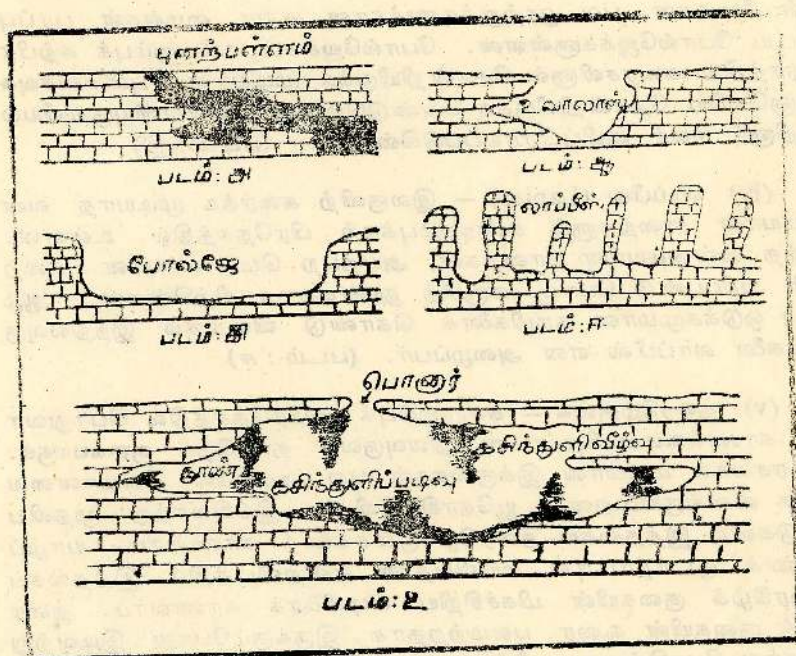 புனற்பள்ளம்
படம்: அ
உவாலாஸ்
படம்: ஆ
போல்ஜே
படம்: இ
லாப்பீஸ்
படம்: ஈ
பொனூர்
கசிந்துளிவீழ்வு
தூண்
கசிந்துளிப்படிவு
படம்: உ